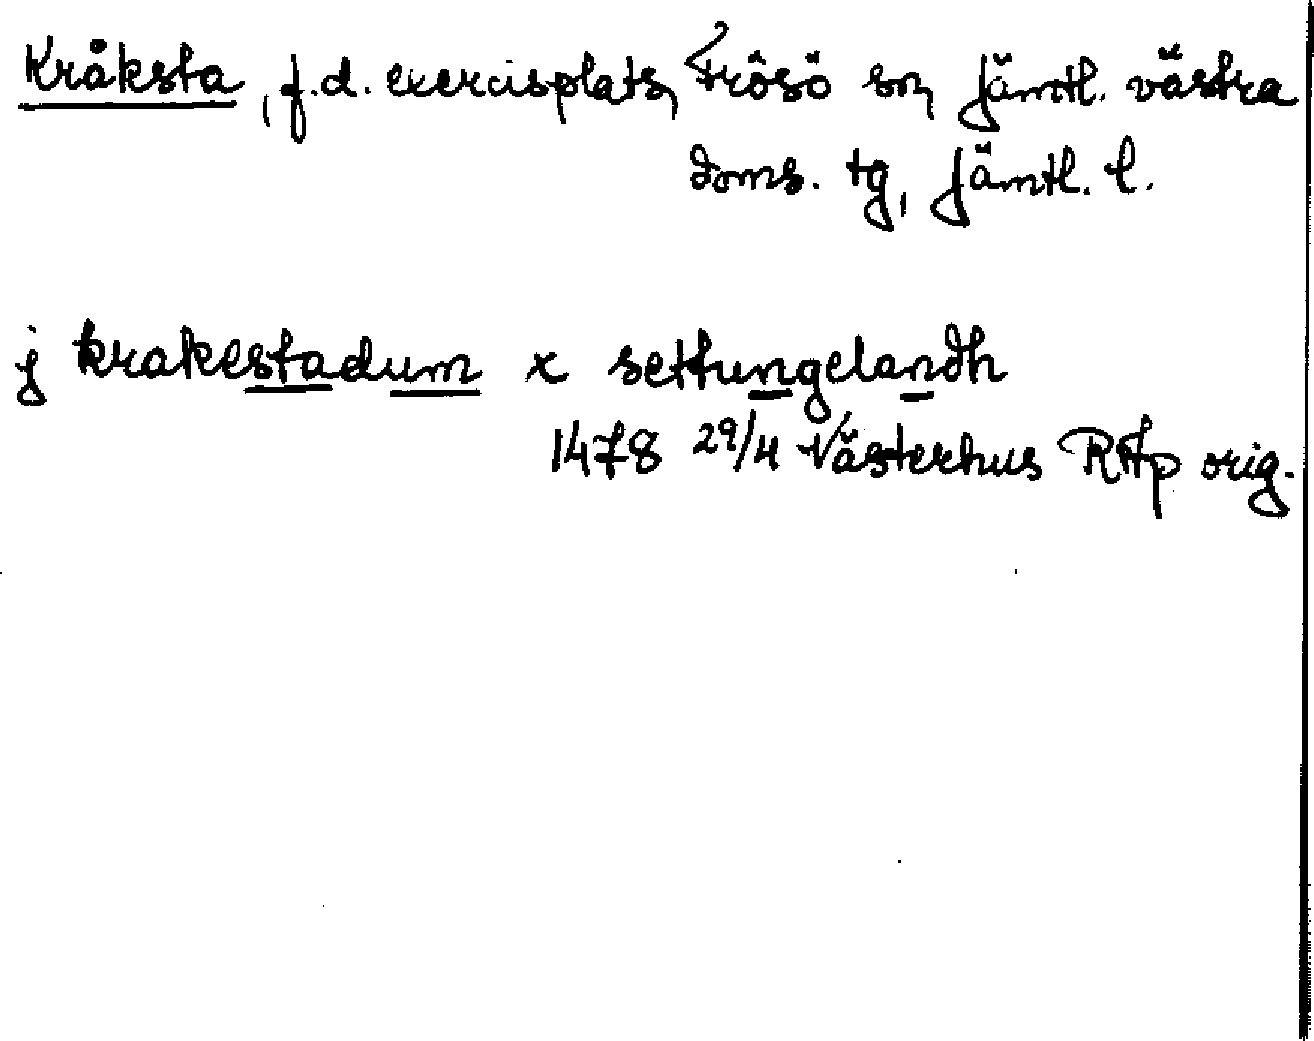 Kråksta, f.d. exercisplats, Frösö sn, Jämtl. västra
doms. tg, Jämtl. l.
j krakestadum x settungelandh
1478 29/4 Västerhus RAp orig.